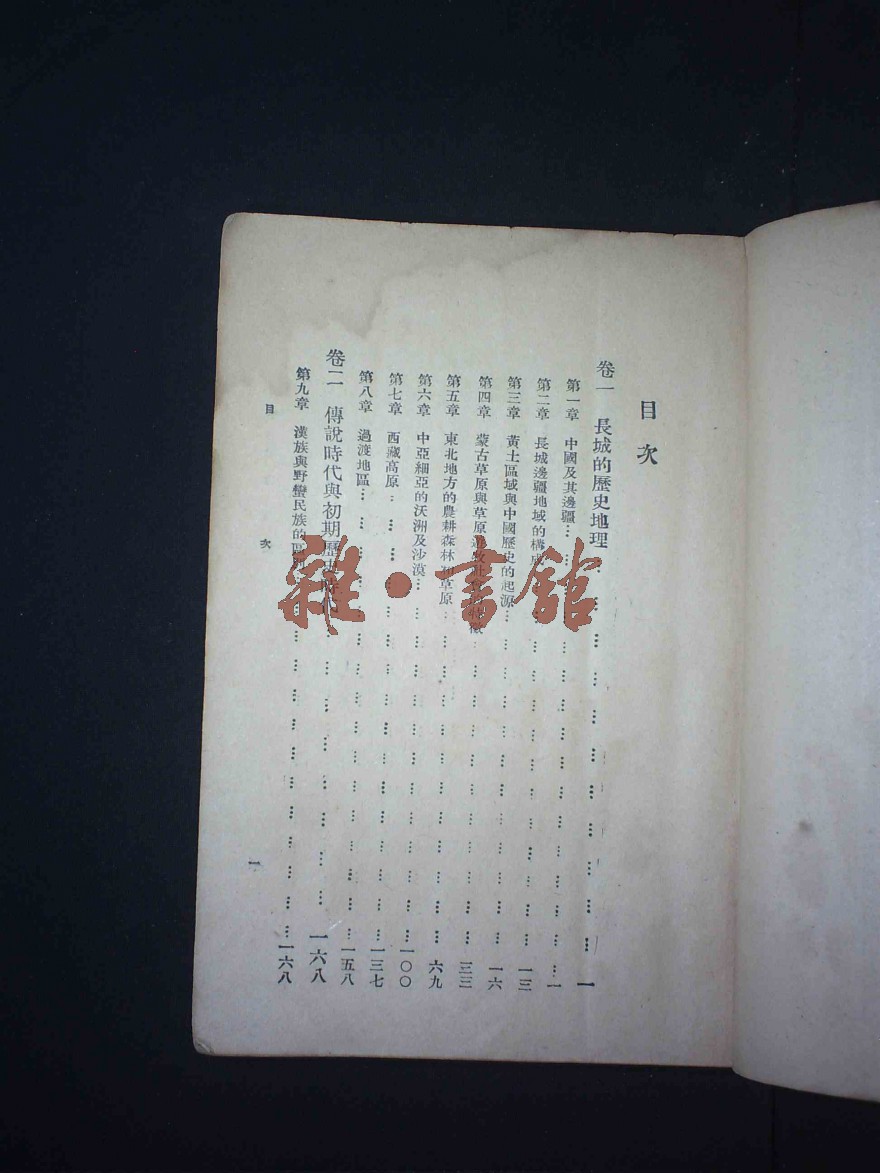 目次
卷一 長城的歷史地理……一
第一章 中國及其邊疆……一
第二章 長城邊疆地域的構成……一三
第三章 黃土區域與中國歷史的起源……一六
第四章 蒙古草原與草原徵……三三
第五章 東北地方的農耕森林和草原……六九
第六章 中亞細亞的沃洲及沙漠……一〇〇
第七章 西藏高原……一三七
第八章 過渡地區……一五八
卷二 傳說時代與初期歷史時代……一六八
第九章 漢族與野蠻民族的區……一六八
目次
一
雜·書館